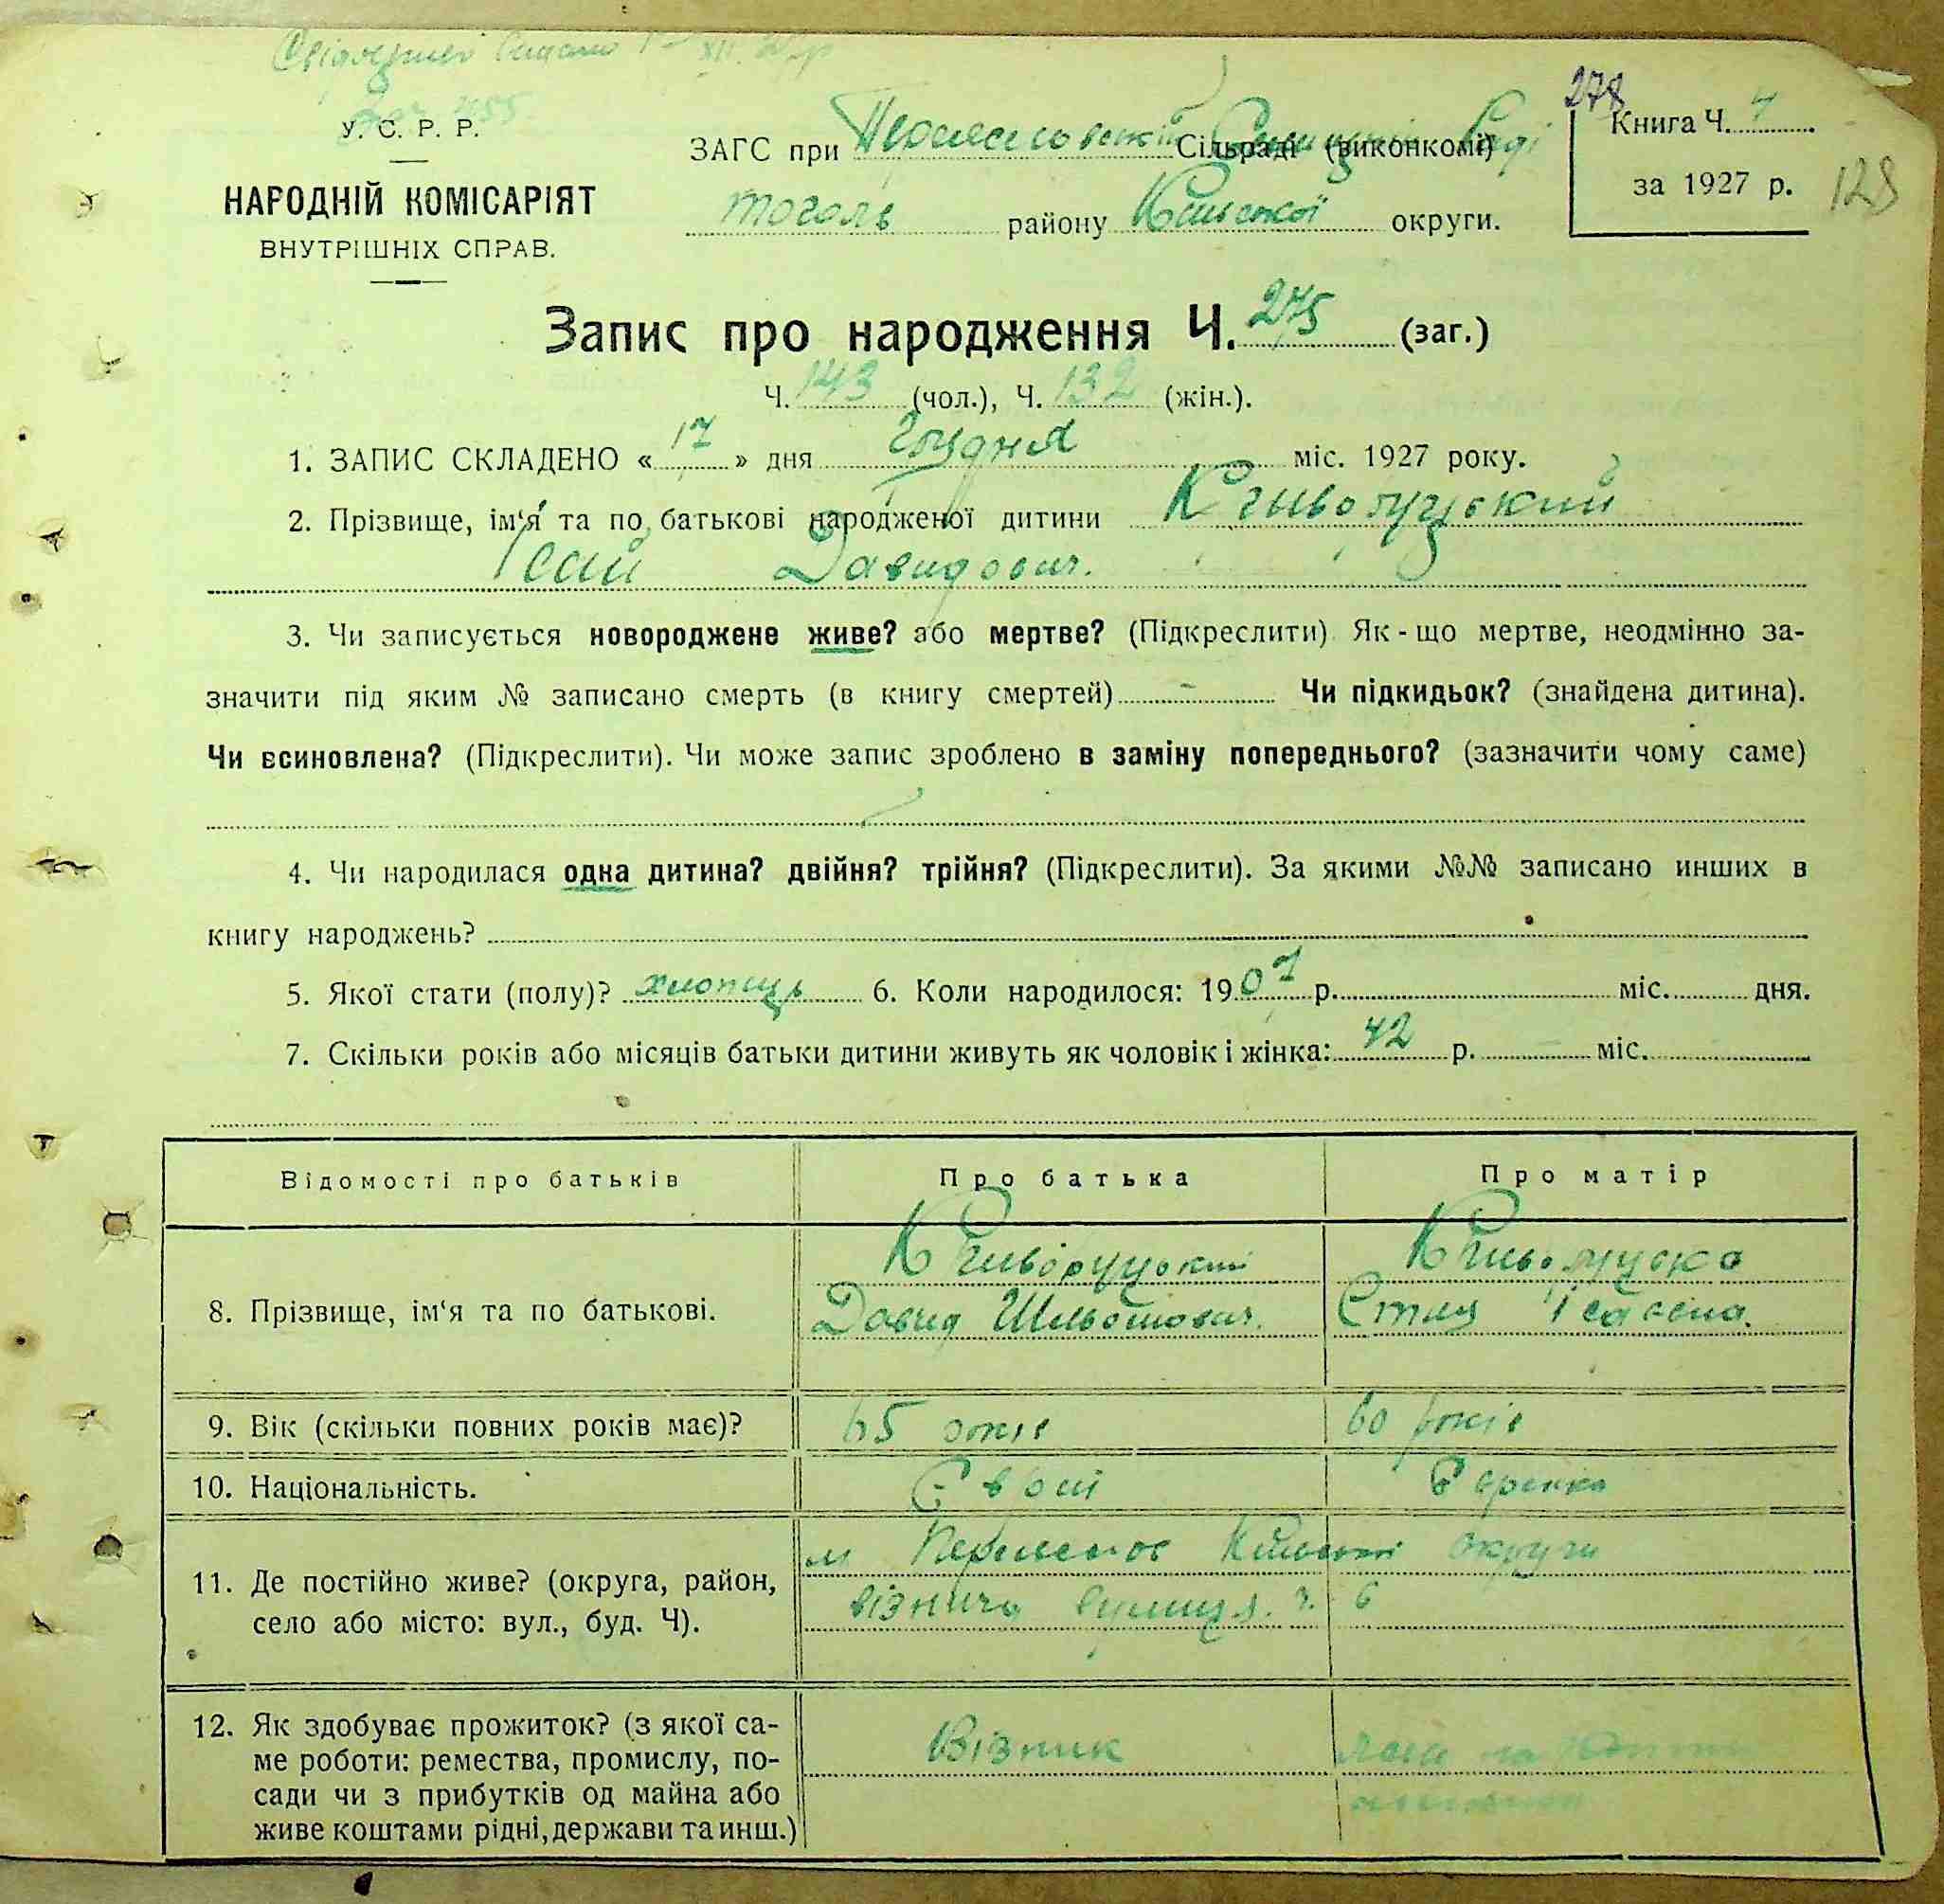 278
У. С. Р. Р.
НАРОДНІЙ КОМІСАРІЯТ
ВНУТРІШНІХ СПРАВ.
ЗАГС при Сільраді (виконкомі)
району Київської округи.
Книга Ч. 4
за 1927 р.
128
Запис про народження Ч. 275 (заг.)
Ч. 143 (чол.), Ч. 132 (жін.).
1. ЗАПИС СКЛАДЕНО « 17 » дня Грудня міс. 1927 року.
2. Прізвище, ім'я та по батькові народженої дитини Криворуцький
Ісай Давидович.
3. Чи записується новороджене живе? або мертве? (Підкреслити) Як-що мертве, неодмінно за-
значити під яким № записано смерть (в книгу смертей) - Чи підкидьок? (знайдена дитина).
Чи всиновлена? (Підкреслити). Чи може запис зроблено в заміну попереднього? (зазначити чому саме)
4. Чи народилася одна дитина? двійня? трійня? (Підкреслити). За якими №№ записано инших в
книгу народжень?
5. Якої стати (полу)? хлопець 6. Коли народилося: 1907 р. міс. дня.
7. Скільки років або місяців батьки дитини живуть як чоловік і жінка: 42 р. міс.
Відомості про батьків Про батька Про матір
8. Прізвище, ім'я та по батькові.
Криворуцький
Давид
Криворуцька
9. Вік (скільки повних років має)? 65 років 60 років
10. Національність. Єврей Єврейка
11. Де постійно живе? (округа, район,
село або місто: вул., буд. Ч).
м Переяслов Київської округи
вулиця ч. 6
12. Як здобуває прожиток? (з якої са-
ме роботи: ремества, промислу, по-
сади чи з прибутків од майна або
живе коштами рідні, держави та инш.)
Візник